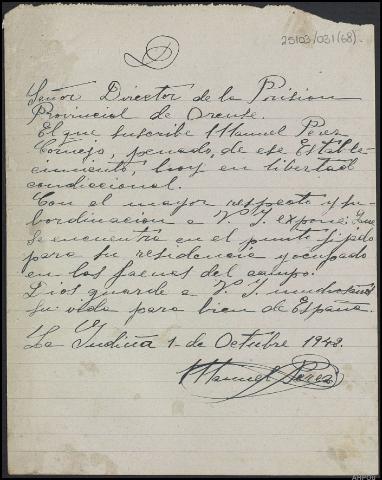 25103/031(68).
Señor Director de la Prision
Provincial de Orense.
El que suscribe Manuel Perez
Cornejo, penado, de ese Estable-
cimiento, hoy en libertad
condicional.
Con el mayor respecto y su-
bordinacion a V. I. expone: Que
se encuentra en el punto fijado
para su residencia y ocupado
en las faenas del campo.
Dios guarde a V. I. muchos años
su vida para bien de España.
La Gudiña 1 de Octubre 1942.
Manuel Perez
AHPOU